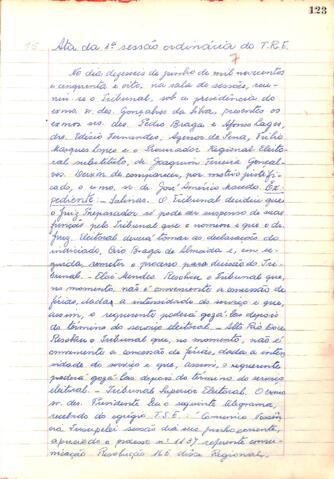 123
Ata da 1ª sessão ordinária do T.R.E.
7
No dia dezesseis de junho de mil novecentos
e cinquenta e oito, na sala de sessões, reu-
niu-se o Tribunal, sob a presidência do
exmo sr. des. Gonçalves da Silva, presentes os
exmos srs. des. Pedro Braga e Afonso Lages,
drs. Edésio Fernandes, Agenor de Sena, Túlio
Marques Lopes e o Procurador Regional Eleito-
ral substituto, dr. Joaquim Ferreira Gonçal-
ves. Deixou de comparecer, por motivo justifi-
cado, o exmo. sr. dr. José Américo Macedo. Ex-
pediente - Salinas. O Tribunal decidiu que
o Juiz Preparador só pode ser suspenso de suas
funções pelo Tribunal que o nomeia e que o dr.
Juiz Eleitoral deverá tomar as declarações do
indiciado, Caio Braga de Almeida e, em se-
guida, remeter o processo para decisão do Tri-
bunal. - Elói Mendes. Resolveu o Tribunal que,
no momento, não é conveniente a concessão de
férias, dada a intensidade do serviço e que,
assim, o requerente poderá gozá-las depois
do término do serviço eleitoral. - Alto Rio Doce.
Resolveu o Tribunal que, no momento, não é
conveniente a concessão de férias, dada a inten-
sidade do serviço e que, assim, o requerente
poderá gozá-las depois do término do serviço
eleitoral. - Tribunal Superior Eleitoral. O exmo
sr. des. Presidente leu o seguinte telegrama,
recebido do egrégio T.S.E.: "Comunico Vossên-
cia Tresuplei sessão dia seis junho corrente,
apreciando o processo nº 1137 referente comu-
nicação Resolução 165 dêsse Regional,